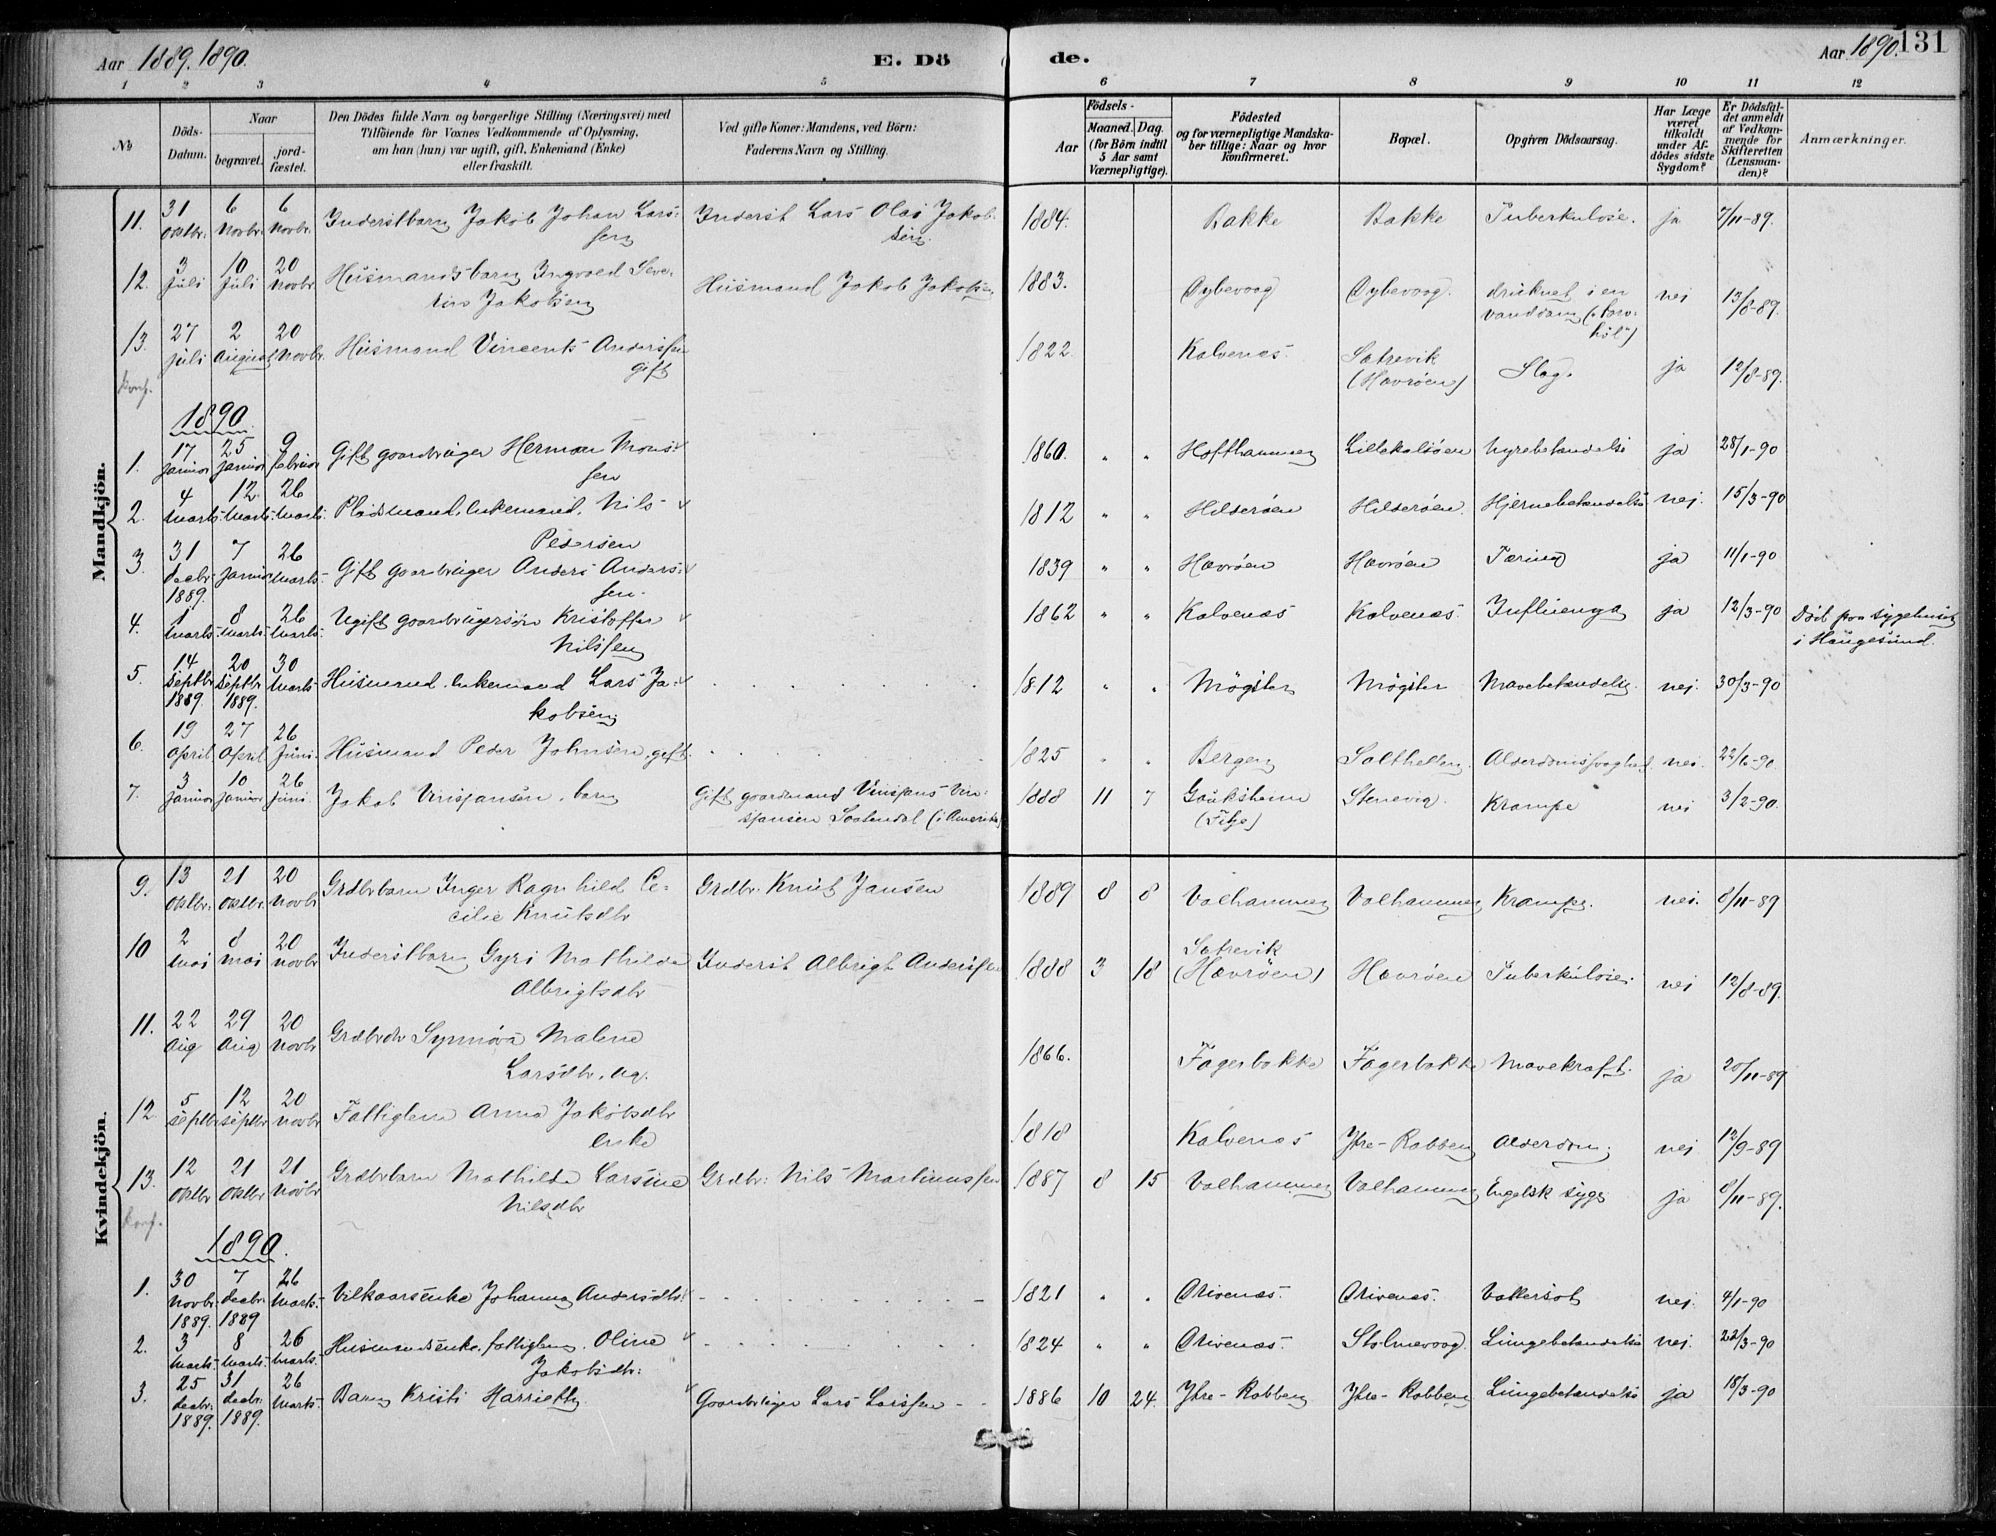 Aar 1889. 1890.
E. Dö
de.
Aar 1890.
131
1 2 3 4 5 6 7 8 9 10 11 12
No
Döds-Datum.
Naar
begravet.
jord-fæstet.
Den Dödes fulde Navn og borgerlige Stilling (Næringsvei) med
Tilföiende for Voxnes Vedkommende af Oplysning,
om han (hun) var ugift, gift, Enkemand (Enke)
eller fraskilt.
Ved gifte Koner: Mandens, ved Börn:
Faderens Navn og Stilling.
Födsels-
Aar
Maaned. Dag.
(for Börn indtil
5 Aar samt
Værnepligtige).
Födested
og for værnepligtige Mandska-
ber tillige: Naar og hvor
konfirmeret.
Bopæl.
Opgiven Dödsaarsag.
Har Læge
været
tilkaldt
under Af-
dödes sidste
Sygdom?
Er Dödsfal-
det anmeldt
af Vedkom-
mende for
Skifteretten
(Lensman-
den)?
Anmærkninger.
Mandkjön.
11. 31 oktbr. 6 novbr. 6 novbr. Inderstbarn Jakob Johan Lars-
sen Inderst Lars Olai Jakob-
sen. 1884. Bakke Bakke Tuberkulose. ja 7/11-89.
12. 3 juli 10 juli 20 novbr. Husmandsbarn Ingvald Seve-
rin Jakobsen Husmand Jakob Jakobsen 1883. Dybevaag Dybevaag. druknet i en
vanddam nei 13/8-89.
13. 27 juli 2 August 20 novbr. Husmand Vincents Anderssen
gift 1822. Kalvenæs. Satrevik
(Havröen) Slag. ja 12/8-89.
1890.
1. 17 januar 25 januar 9 februar Gift gaardbruger Herman Mons-
sen 1860. " " Hofthammer Lillekalsöen nyrebetændelse ja 28/1-90
2. 4 marts. 12. marts. 26 marts. Pladsmand, enkemand, Nils
Pedersen 1812 " " Hilderöen Hilderöen. Hjernebetændelse nej. 15/3-90
3. 31 decbr. 1889. 7 januar 26 marts. Gift gaardbruger Anders Anders-
sen. 1839 " " Hævröen Hævröen Tæring ja 11/1-90
4. 1 marts. 8 marts. 26 marts. Ugift gaardbrugersön Kristoffer
Nilssen 1862 " " Kalvenæs Kalvenæs. Influenza ja 12/3-90 Död paa sygehuset
i Haugesund.
5. 14 septbr 1889. 20 septbr 1889. 30 marts. Husmand, enkemand Lars Ja-
kobsen. 1812 " " Mögster Mögster Mavebetændelse. nej. 30/3-90
6. 19 April 27 April 26 Juni. Husmand Peder Johnsen, gift. 1825 " " Bergen Salthellen. Alderdomssvaghed. nei. 22/6-90.
7. 3 januar 10 januar 26 juni. Jakob Vinsjansen, barn Gift gaardmand Vinsjans Vin-
sjansen Laatendal (i Amerika) 1888 11 7 Gauksheim
(Fitje) Stenevig. Krampe nei 3/2-90.
Kvindekjön.
9. 13 oktbr. 21 oktbr. 20 novbr Grdbrbarn Inger Ragnhild Ce-
cilie Knutsdtr Grdbr. Knut Jansen 1889 8 8 Valhammer Valhammer Krampe. nei. 8/11-89
10 2 mai 8 mai 20 novbr Inderstbarn Gyri Mathilde
Albrigtsdtr Inderst Albrigt Anderssen 1888 3 18 Satrevik
(Hævröen) Hævröen Tuberkulose. nei 12/8-89.
11. 22 Aug 29 Aug 20 novbr Grdbrdtr Synnöva Malene
Larsdtr. ug. 1866. Fagerbakke Fagerbakke Mavekræft. ja 20/11-89
12. 5 septbr 12 septbr 20 novbr Fattiglem Anna Jakobsdtr
enke 1818 Kalvenæs Ytre-Rabben Alderdom. nej 12/9-89
13. 12 oktbr 21 oktbr 21 novbr Grdbrbarn Mathilde Larsine
Nilsdtr Grdbr: Nils Martinussen 1887 8 15 Valhammer Valhammer Engelsk syge ja 8/11-89.
1890.
1. 30 novbr. 1889. 7 decbr. 1889 26 marts. Vilkaarsenke Johanna Andersdtr. 1821 " " Drivenæs. Drivenæs. Vattersot nej. 4/1-90
2. 3 marts. 8 marts. 26 marts. Husmandsenke, fattiglem, Oline
Jakobsdtr: 1824 " " Drivenæs. Stolmevaag. Lungebetændelse nej. 22/3-90
3. 25 decbr: 1889. 31 decbr. 1889. 26 marts. Barn Kristi Harriette Gaardbruger Lars Larssen 1886 10 24. Ytre-Rabben Ytre-Rabben Lungebetændelse ja 18/3-90